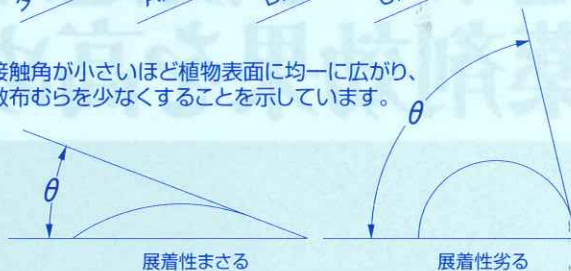 接触角が小さいほど植物表面に均一に広がり、
散布むらを少なくすることを示しています。
θ
θ
展着性まさる
展着性劣る